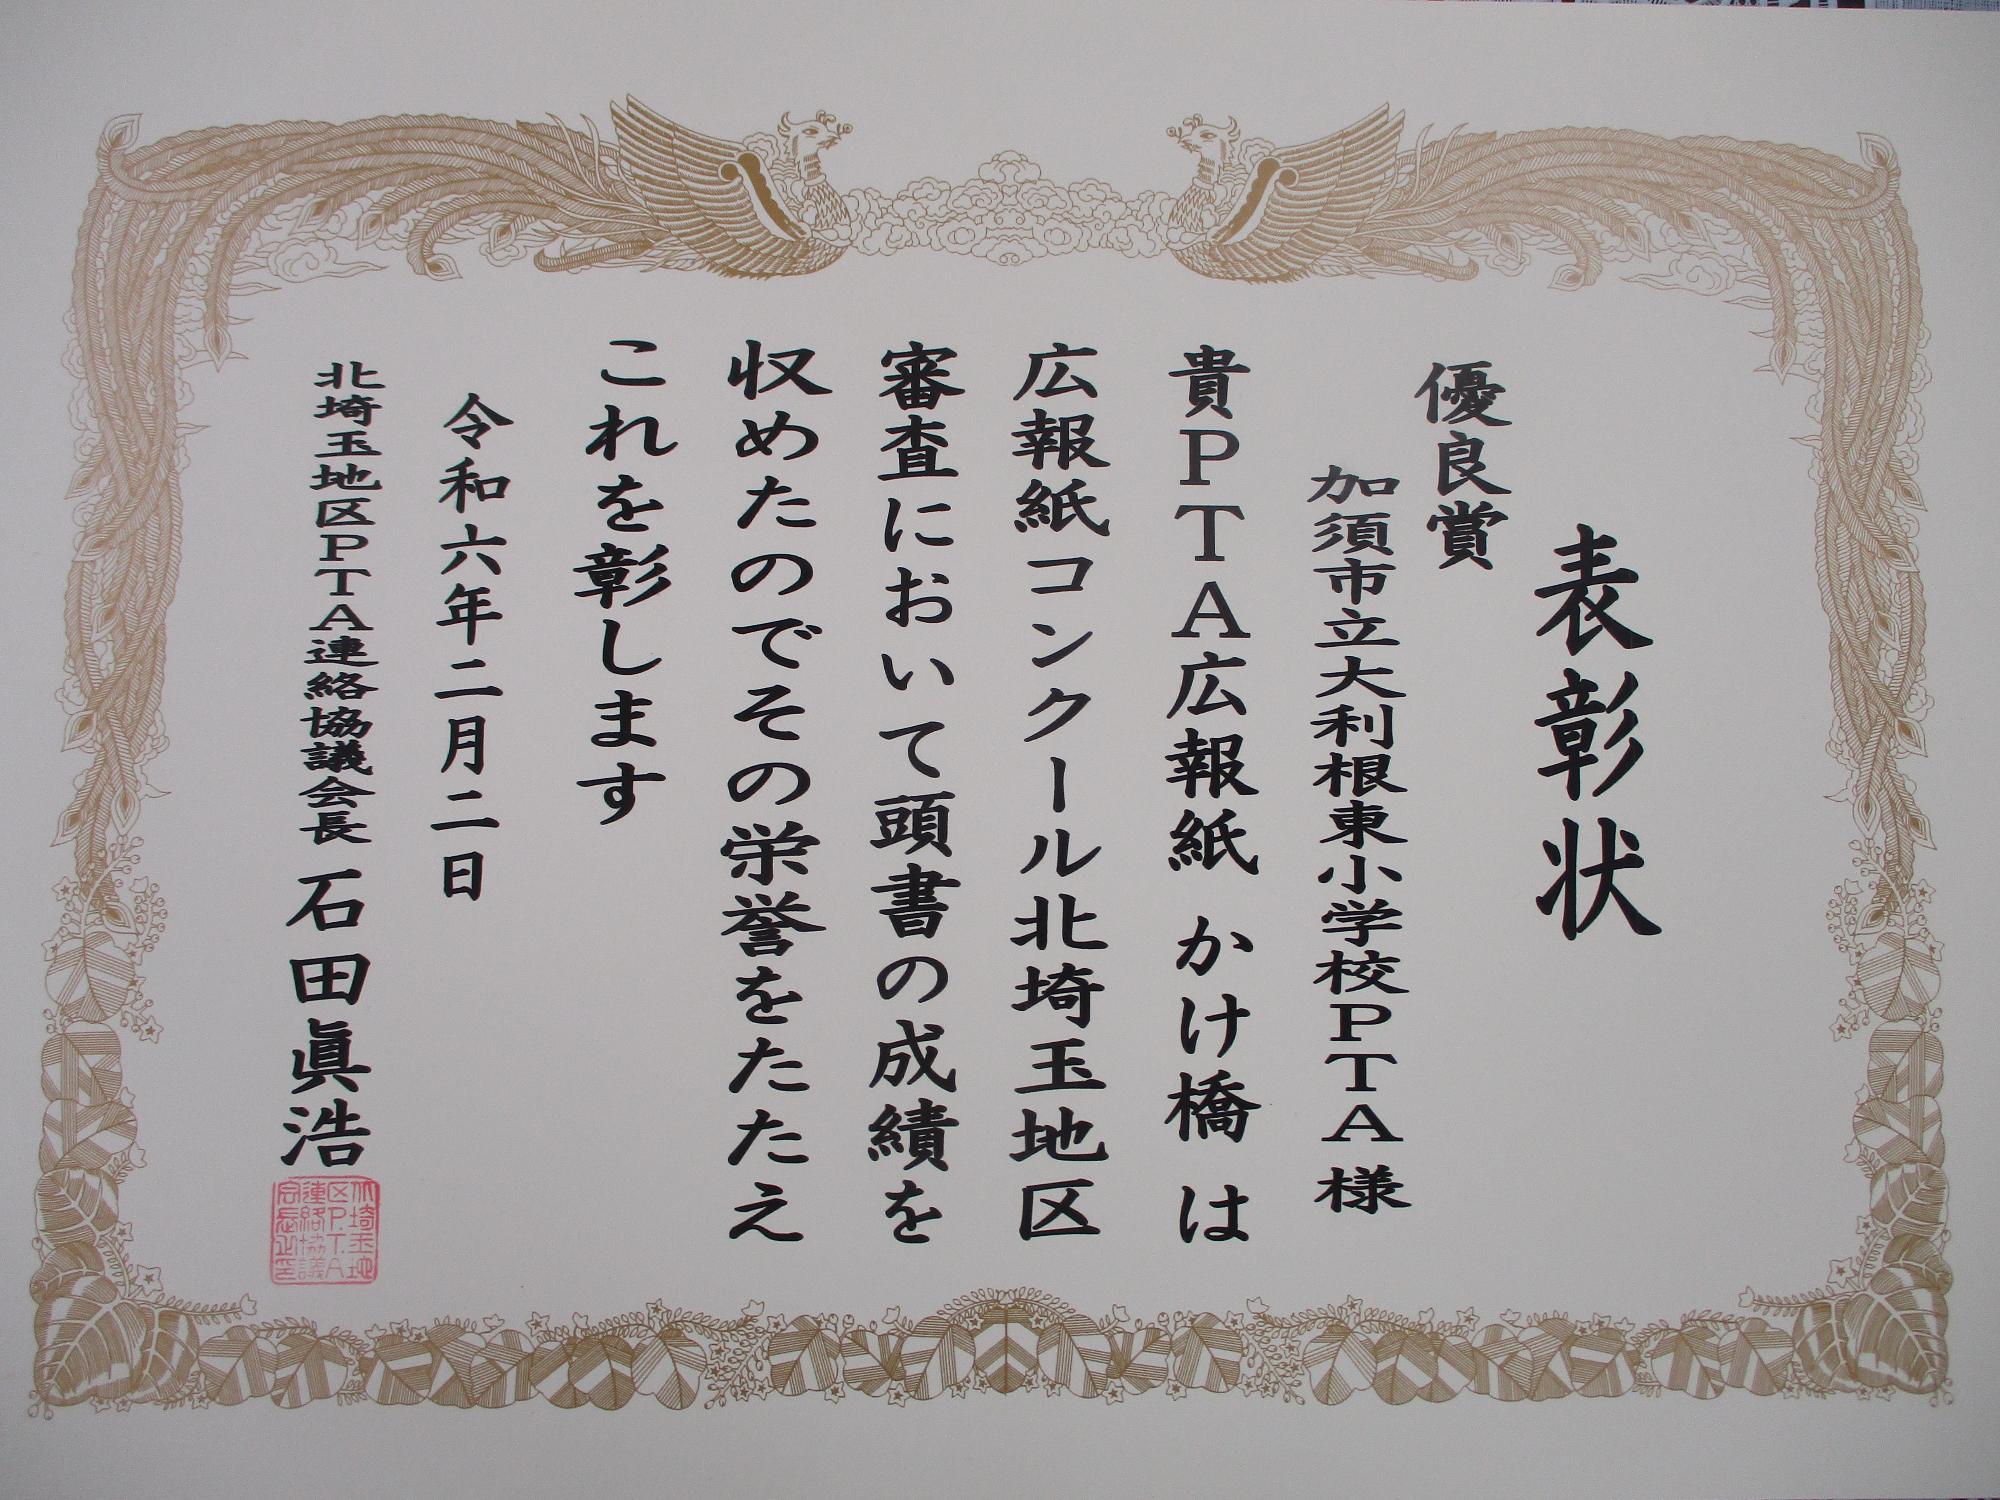 表彰状
優良賞
加須市立大利根東小学校PTA様
貴PTA広報紙 かけ橋 は
広報紙コンクール北埼玉地区
審査において頭書の成績を
収めたのでその栄誉をたたえ
これを彰します
令和六年二月二日
北埼玉地区PTA連絡協議会長 石田眞浩
北埼玉地
区P.T.A
連絡協議
会長之印